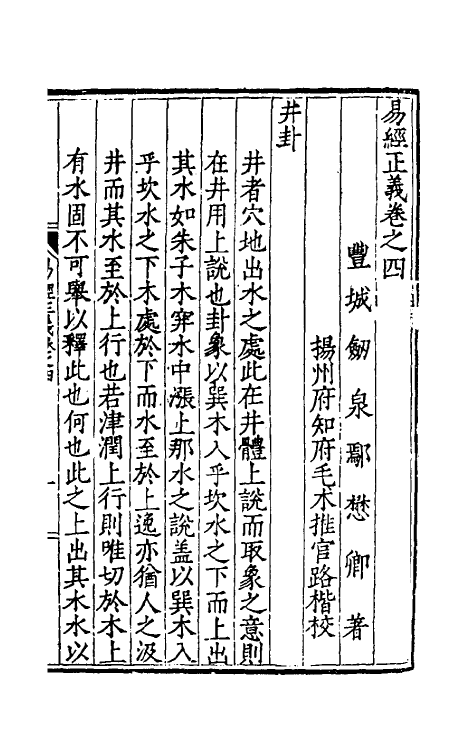 易經正義卷之四
豐城劒泉鄢懋卿著
揚州府知府毛术推官路楷校
井卦
井者穴地出水之處此在井體上說而取象之意則
在井用上說也卦象以巽木入乎坎水之下而上出
其水如朱子木穽水中漲上那水之說盖以巽木入
乎坎水之下木處於下而水至於上逸亦猶人之汲
井而其水至於上行也若津潤上行則唯切於木上
有水固不可舉以釋此也何也此之上出其木水以